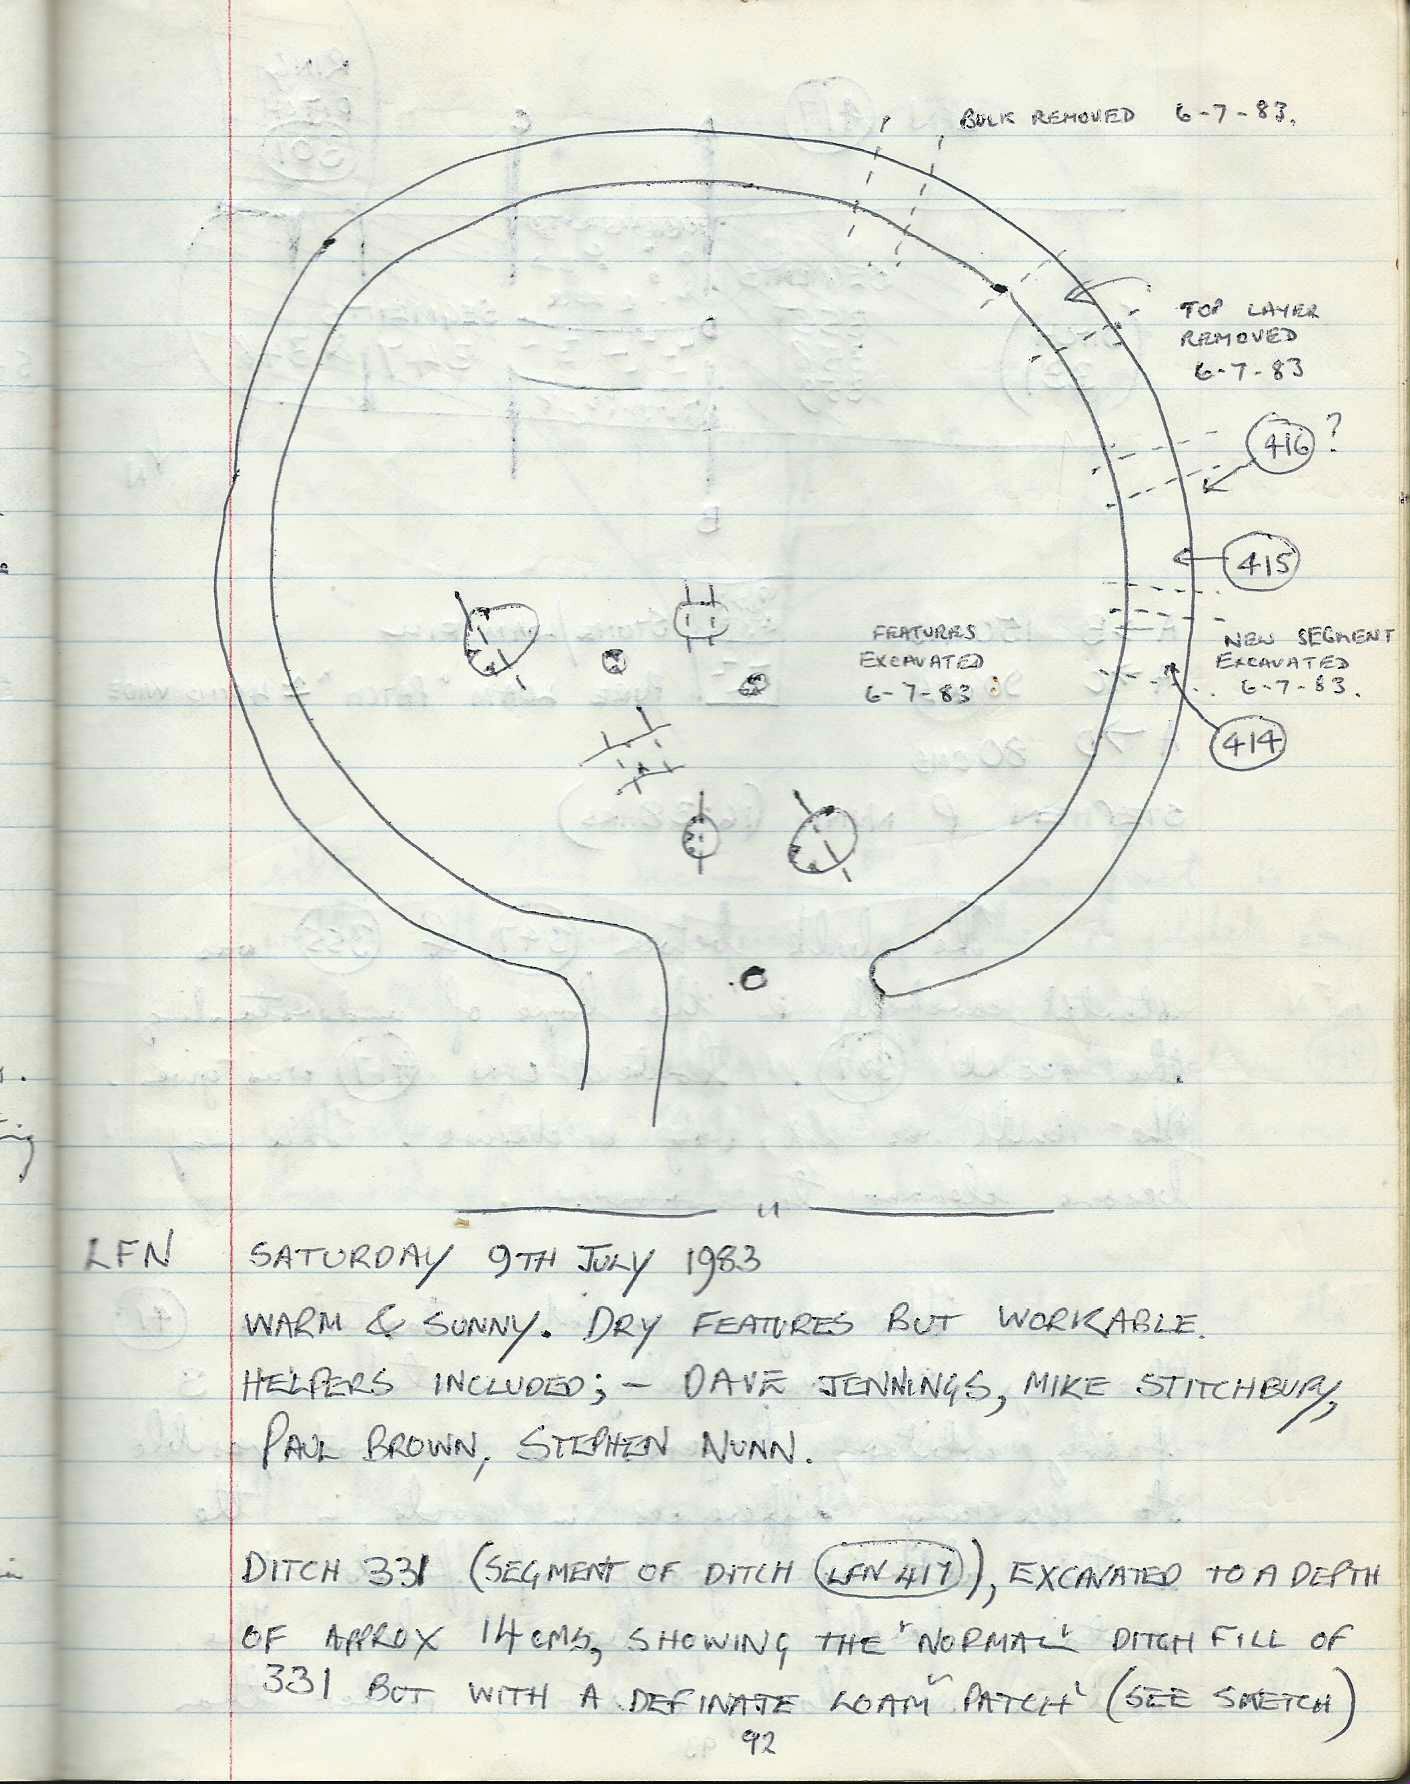 BULK REMOVED 6-7-83.
TOP LAYER
REMOVED
6-7-83
416 ?
415
FEATURES
EXCAVATED
6-7-83
NEW SEGMENT
EXCAVATED
6-7-83.
414
LFN SATURDAY 9TH JULY 1983
WARM & SUNNY. DRY FEATURES BUT WORKABLE.
HELPERS INCLUDED;- DAVE JENNINGS, MIKE STITCHBURY,
PAUL BROWN, STEPHEN NUNN.
DITCH 331 (SEGMENT OF DITCH LFN 417), EXCAVATED TO A DEPTH
OF APPROX 14 CMS, SHOWING THE "NORMAL" DITCH FILL OF
331 BUT WITH A DEFINATE LOAM "PATCH" (SEE SKETCH)
92